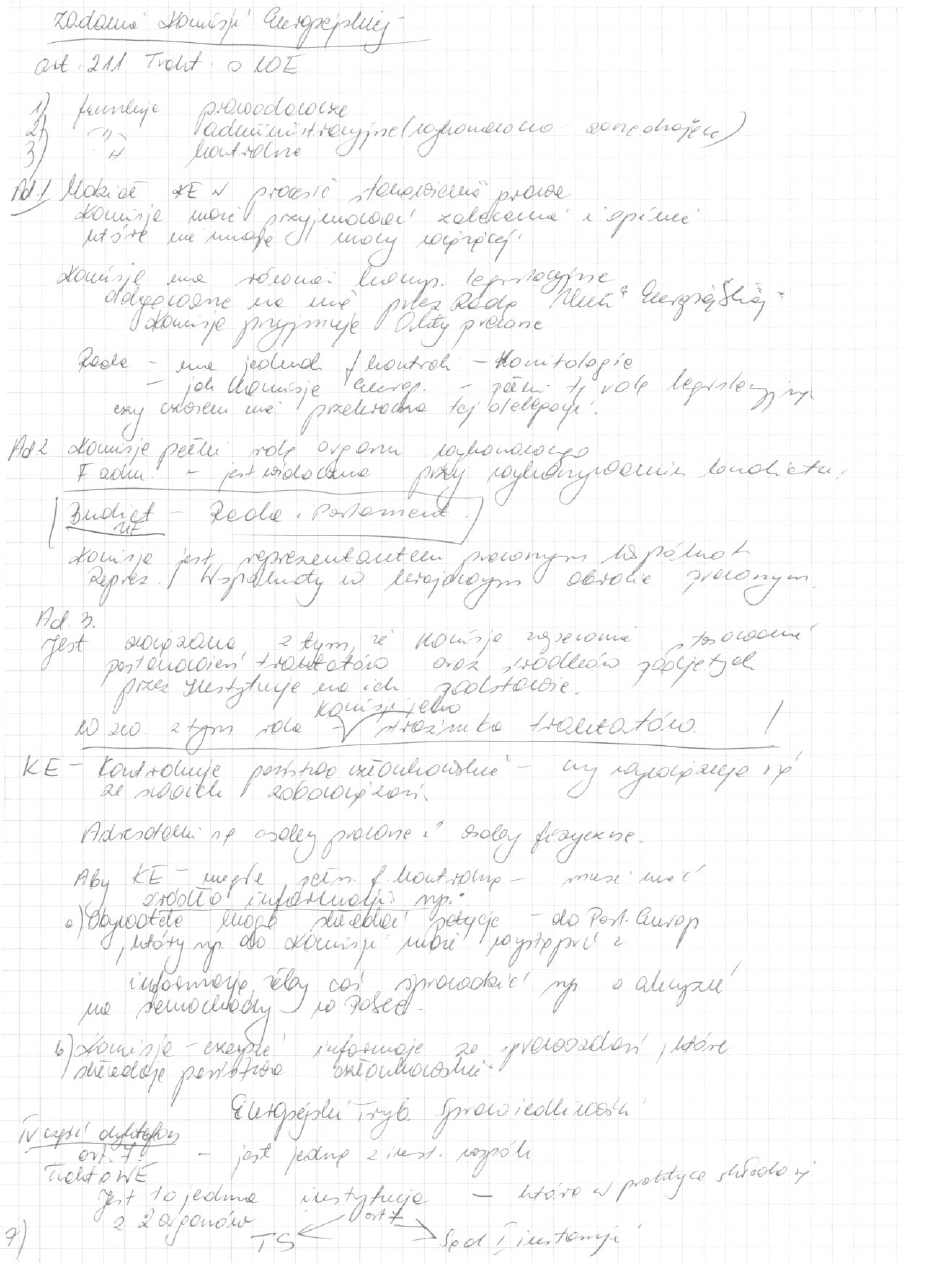 Zadania Komisji Europejskiej
art. 211 Trakt. o WE
1) funkcje prawodawcze
2) -"- administracyjne (wykonawczo - zarządzające)
3) -"- kontrolne
Ad.1 Udział KE w procesie stanowienia prawa
Komisja może przyjmować zalecenia i opinie
które nie mają mocy wiążącej.
Komisja ma również komp. legislacyjne
delegowane na nią przez Radę Unii Europejskiej
Komisja przyjmuje akty prawne
Rada - ma jednak f. kontroli - Komitologia
- jak Komisja Europ. - pełni tę rolę legislacyjną
czy czasem nie przekracza tej delegacji.
Ad 2 Komisja pełni rolę organu wykonawczego
F. adm. - jest widoczna przy wykonywaniu budżetu.
Budżet - Rada i Parlament.
UE
Komisja jest reprezentantem prawnym Wspólnot
Reprez. Wspólnoty w krajowym obrocie prawnym.
Ad. 3.
Jest związana z tym, że Komisja zapewnia stosowanie
postanowień traktatów oraz środków podjętych
przez instytucje na ich podstawie.
W zw. z tym rola Komisji jako strażnika traktatów. !
KE - Kontroluje państwo członkowskie - czy wywiązuje się
ze swoich zobowiązań.
Adresatami są osoby prawne i osoby fizyczne.
Aby KE - mogła pełn. f. kontrolną - musi mieć
źródło informacji np.:
a) Obywatele mogą składać petycje - do Parl. Europ
, który np. do Komisji może wystąpić z
informacją, żeby coś sprawdzić np o akcyzie
na samochody w Polsce.
b) Komisja - czerpie informacje ze sprawozdań, które
składają państwa członkowskie.
Europejski Tryb. Sprawiedliwości
IV część
art. 7. - jest jedną z inst. wspóln
Trakt o WE
Jest to jedna instytucja - która w praktyce składa się
z 2 organów
art 7
7) TS Sąd I instancji